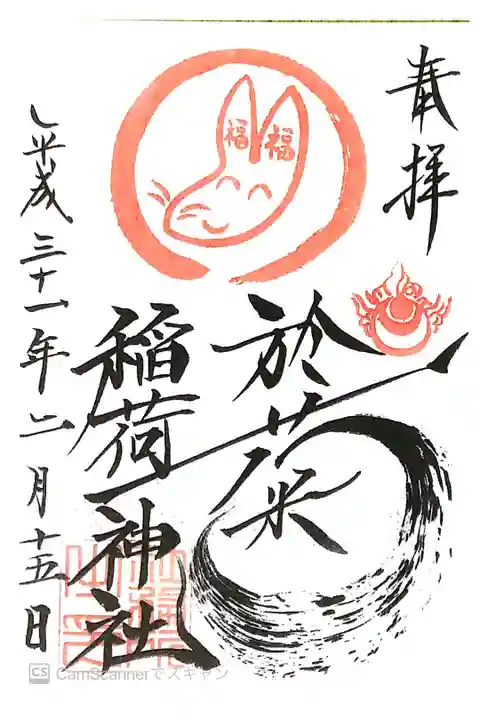 奉拝
於菊
稲荷神社
平成三十一年二月十五日
福
福
CS CamScannerでスキャン